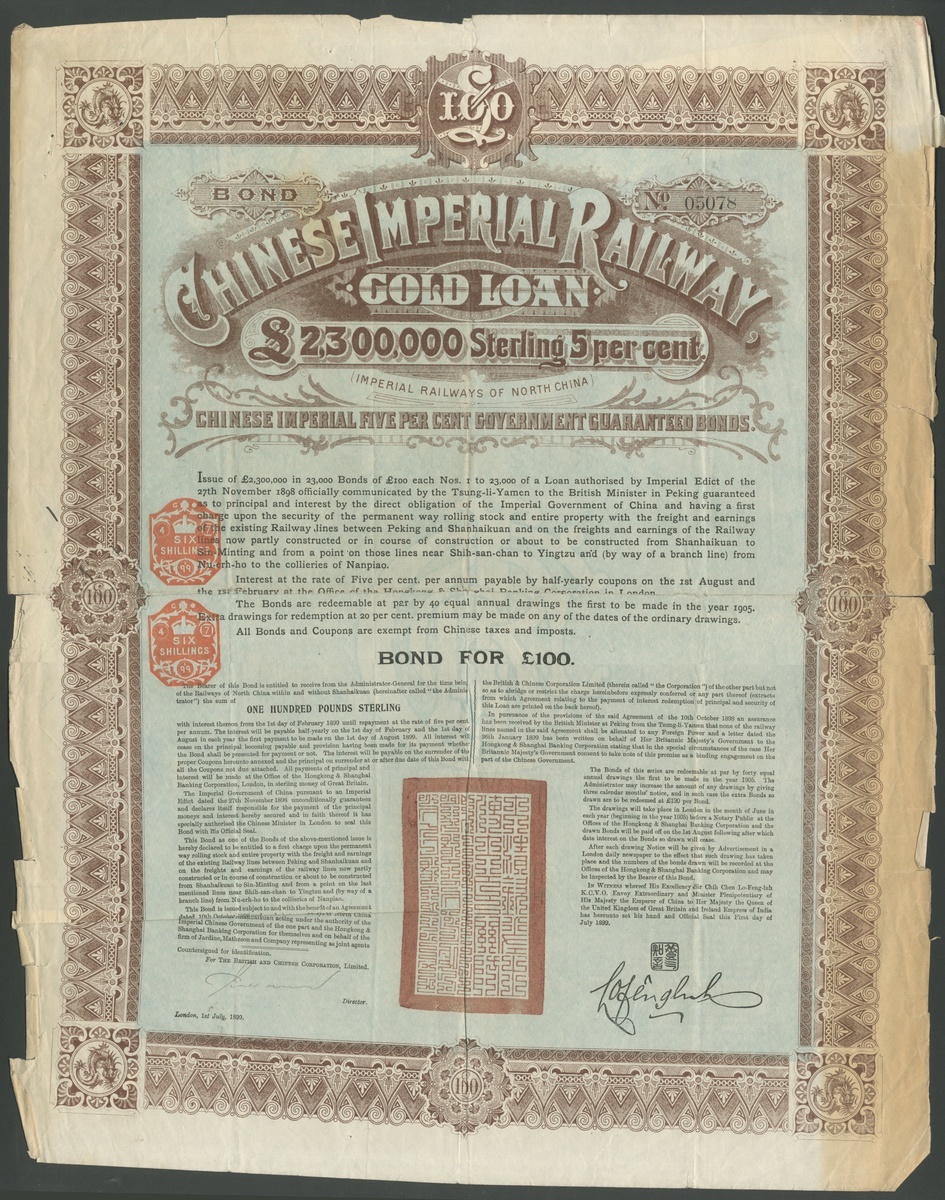 £100
BOND
No 05078
CHINESE IMPERIAL RAILWAY
GOLD LOAN
£2,300,000 Sterling 5 per cent.
(IMPERIAL RAILWAYS OF NORTH CHINA)
CHINESE IMPERIAL FIVE PER CENT GOVERNMENT GUARANTEED BONDS.
Issue of £2,300,000 in 23,000 Bonds of £100 each Nos. 1 to 23,000 of a Loan authorised by Imperial Edict of the
27th November 1898 officially communicated by the Tsung-li-Yamen to the British Minister in Peking guaranteed
as to principal and interest by the direct obligation of the Imperial Government of China and having a first
charge upon the security of the permanent way rolling stock and entire property with the freight and earnings
of the existing Railway lines between Peking and Shanhaikuan and on the freights and earnings of the Railway
lines now partly constructed or in course of construction or about to be constructed from Shanhaikuan to
Sin-Minting and from a point on those lines near Shih-san-chan to Yingtzu and (by way of a branch line) from
Nu-erh-ho to the collieries of Nanpiao.
Interest at the rate of Five per cent. per annum payable by half-yearly coupons on the 1st August and
the 1st February at the Office of the Hongkong & Shanghai Banking Corporation in London.
The Bonds are redeemable at par by 40 equal annual drawings the first to be made in the year 1905.
Extra drawings for redemption at 20 per cent. premium may be made on any of the dates of the ordinary drawings.
All Bonds and Coupons are exempt from Chinese taxes and imposts.
4
SIX
SHILLINGS
99
4 7
SIX
SHILLINGS
99
100
100
BOND FOR £100.
The Bearer of this Bond is entitled to receive from the Administrator-General for the time being
of the Railways of North China within and without Shanhaikuan (hereinafter called "the Adminis-
trator") the sum of
ONE HUNDRED POUNDS STERLING
with interest thereon from the 1st day of February 1899 until repayment at the rate of five per cent.
per annum. The interest will be payable half-yearly on the 1st day of February and the 1st day of
August in each year the first payment to be made on the 1st day of August 1899. All interest will
cease on the principal becoming payable and provision having been made for its payment whether
the Bond shall be presented for payment or not. The interest will be payable on the surrender of the
proper Coupons hereunto annexed and the principal on surrender at or after due date of this Bond with
all the Coupons not due attached. All payments of principal and
interest will be made at the Office of the Hongkong & Shanghai
Banking Corporation, London, in sterling money of Great Britain.
The Imperial Government of China pursuant to an Imperial
Edict dated the 27th November 1898 unconditionally guarantees
and declares itself responsible for the payment of the principal
moneys and interest hereby secured and in faith thereof it has
specially authorised the Chinese Minister in London to seal this
Bond with His Official Seal.
This Bond as one of the Bonds of the above-mentioned issue is
hereby declared to be entitled to a first charge upon the permanent
way rolling stock and entire property with the freight and earnings
of the existing Railway lines between Peking and Shanhaikuan and
on the freights and earnings of the railway lines now partly
constructed or in course of construction or about to be constructed
from Shanhaikuan to Sin-Minting and from a point on the last
mentioned lines near Shih-san-chan to Yingtzu and (by way of a
branch line) from Nu-erh-ho to the collieries of Nanpiao.
This Bond is issued subject to and with the benefit of an Agreement
dated 10th October 1898
Imperial Chinese Government of the one part and the Hongkong &
Shanghai Banking Corporation for themselves and on behalf of the
firm of Jardine, Matheson and Company representing as joint agents
Countersigned for identification.
For THE BRITISH AND CHINESE CORPORATION, Limited.
Director.
London, 1st July, 1899.
the British & Chinese Corporation Limited (therein called "the Corporation") of the other part but not
so as to abridge or restrict the charge hereinbefore expressly conferred or any part thereof (extracts
from which Agreement relating to the payment of interest redemption of principal and security of
this Loan are printed on the back hereof).
In pursuance of the provisions of the said Agreement of the 10th October 1898 an assurance
has been received by the British Minister at Peking from the Tsung-li-Yamen that none of the railway
lines named in the said Agreement shall be alienated to any Foreign Power and a letter dated the
26th January 1899 has been written on behalf of Her Britannic Majesty's Government to the
Hongkong & Shanghai Banking Corporation stating that in the special circumstances of the case Her
Britannic Majesty's Government consent to take note of this promise as a binding engagement on the
part of the Chinese Government.
The Bonds of this series are redeemable at par by forty equal
annual drawings the first to be made in the year 1905. The
Administrator may increase the amount of any drawings by giving
three calendar months' notice, and in such case the extra Bonds so
drawn are to be redeemed at £120 per Bond.
The drawings will take place in London in the month of June in
each year (beginning in the year 1905) before a Notary Public at the
Offices of the Hongkong & Shanghai Banking Corporation and the
drawn Bonds will be paid off on the 1st August following after which
date interest on the Bonds so drawn will cease.
After each drawing Notice will be given by Advertisement in a
London daily newspaper to the effect that such drawing has taken
place and the numbers of the bonds drawn will be recorded at the
Offices of the Hongkong & Shanghai Banking Corporation and may
be inspected by the Bearer of this Bond.
IN WITNESS whereof His Excellency Sir Chih Chen Lo-Feng-luh
K.C.V.O. Envoy Extraordinary and Minister Plenipotentiary of
His Majesty the Emperor of China to Her Majesty the Queen of
the United Kingdom of Great Britain and Ireland Empress of India
has hereunto set his hand and Official Seal this First day of
July 1899.
Lofêngluh
100